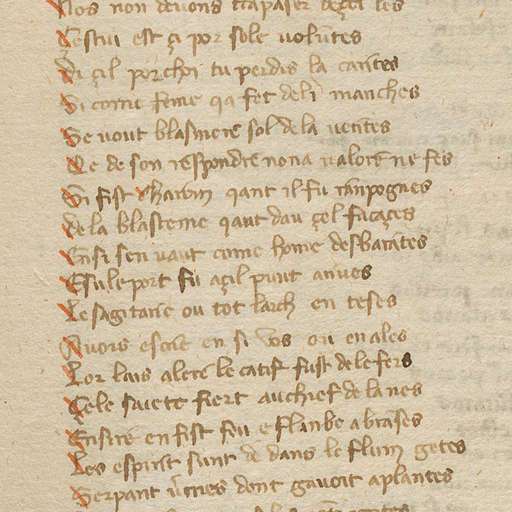 Nos non devons trapaser deçei les
Cestui est çi por sole volũtes
Di çil porchoi tu perdis la carites
Si come feme qa fet deli manches
Se vout blasmere sol de la ventes
Qe de son respondre nona valore ne fes
Si fist Charom qant il fu rãnpognes
de la blasteme qaut dau çel fucaçes
Ensi sen vaut come home desbarates
Esule port fu açil punt anues
Le sagitarie ou tot larch en teses
Avors escrie en si vos ou en ales
Lor lais alere le catif fust de le fers
Cele saiete fiert au chief de la nes
Ensire en fist feu e flanbe abrases
Les espirit sunt de dans le flum getes
Serpant ũtries dont gavoit aplantes